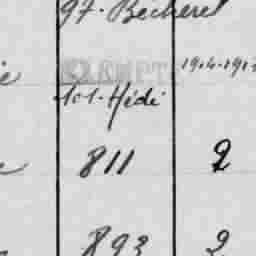 97. Becherel
EXEMPTÉ 1914-191
101-Hédé
811 2
893 2